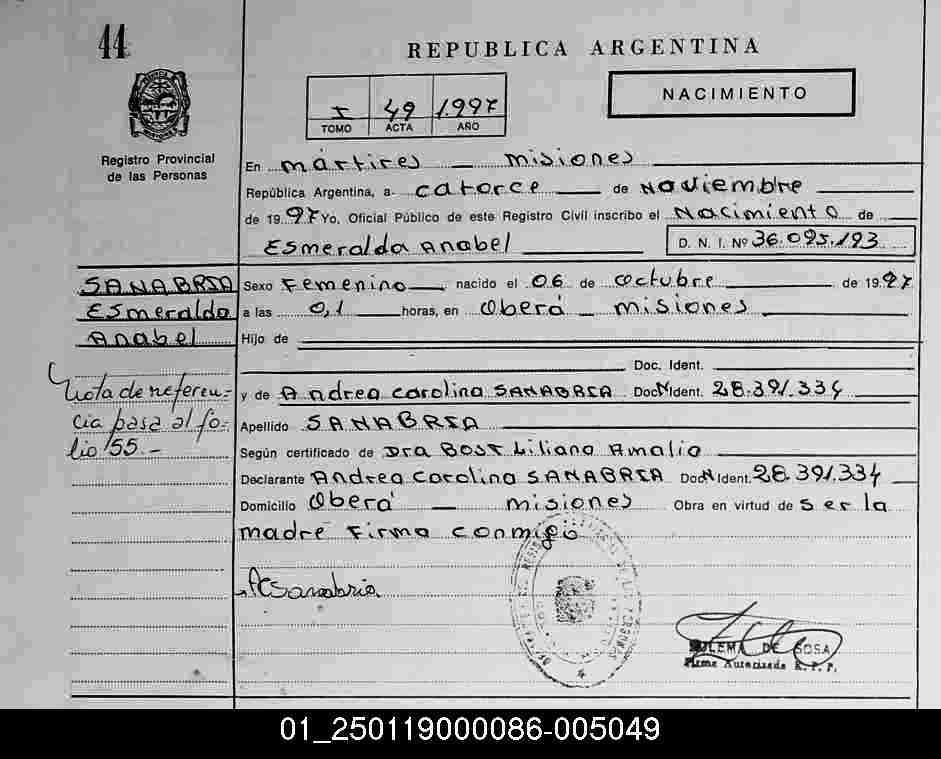 44
REPUBLICA ARGENTINA
NACIMIENTO
I 49 1.997
TOMO ACTA AÑO
Registro Provincial
de las Personas
En mártires — misiones
República Argentina, a catorce de Noviembre
de 1997 Yo, Oficial Público de este Registro Civil inscribo el Nacimiento de
Esmeralda Anabel D. N. I. Nº 36.095.193
SANABRIA
Esmeralda
Anabel
Sexo Femenino, nacido el 06 de octubre de 1997
a las 0,1 horas, en Oberá — misiones
Hijo de
Doc. Ident.
y de Andrea Carolina SANABRIA Doc N Ident. 28.391.334
Apellido SANABRIA
Según certificado de Dra Bost Liliana Amalia
Declarante Andrea Carolina SANABRIA Doc N Ident. 28.391.334
Domicilio Oberá — misiones Obra en virtud de ser la
madre Firma conmigo
Nota de referen-
cia pasa al fo-
lio 155.-
ACSanabria
ZULEMA DE SOSA
Firma Autorizada R. P. P.
01_250119000086-005049